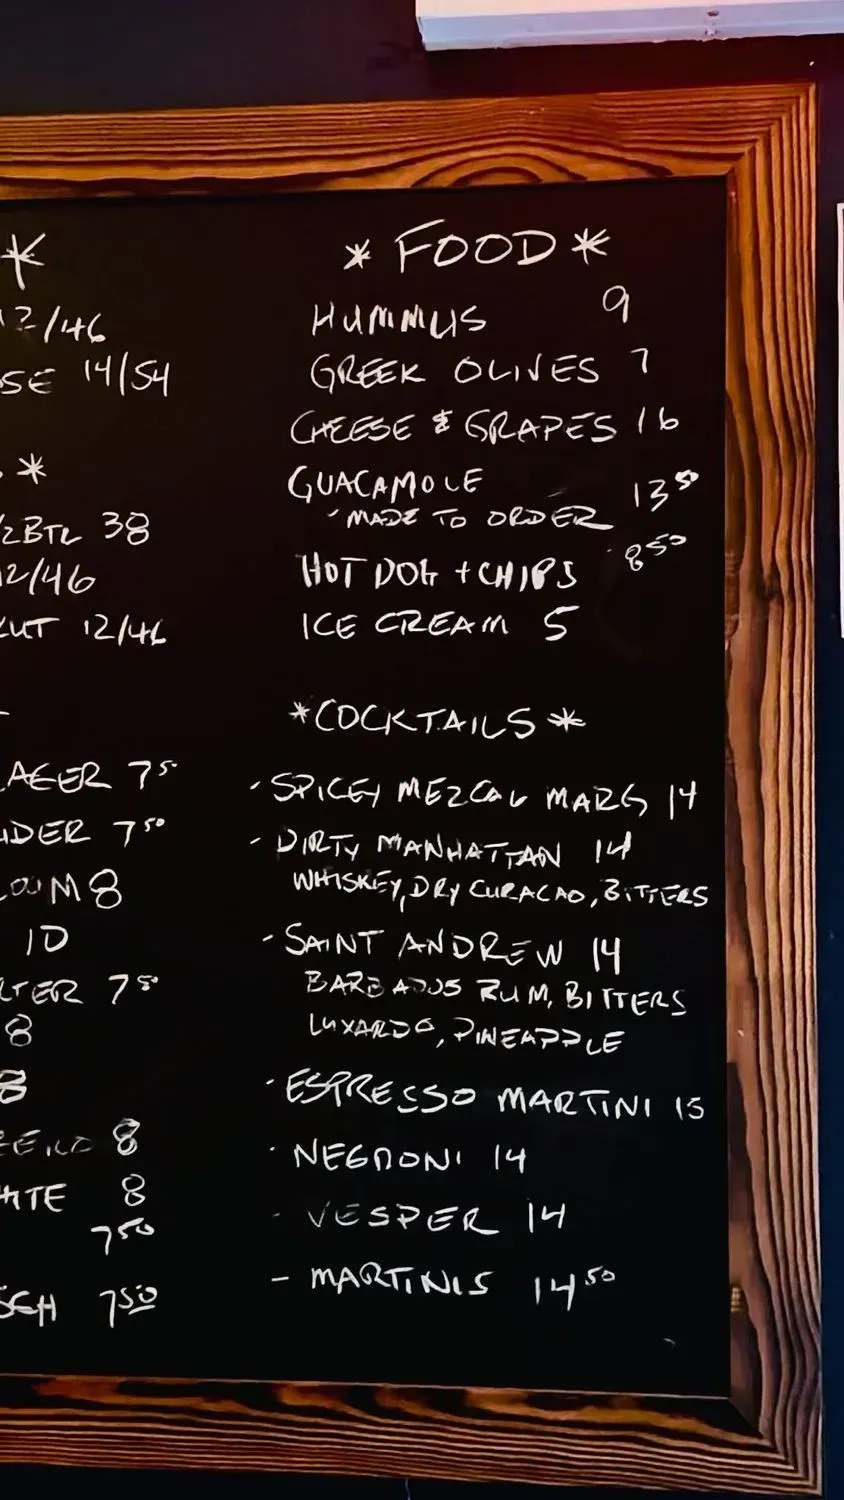 * FOOD *
HUMMUS 9
GREEK OLIVES 7
CHEESE & GRAPES 16
GUACAMOLE 13 50
- MADE TO ORDER
HOT DOG + CHIPS 8 50
ICE CREAM 5
*COCKTAILS*
- SPICEY MEZCAL MARG 14
- DIRTY MANHATTAN 14
WHISKEY, DRY CURACAO, BITTERS
- SAINT ANDREW 14
BARBADOS RUM, BITTERS
LUXARDO, PINEAPPLE
- ESPRESSO MARTINI 15
- NEGRONI 14
- VESPER 14
- MARTINIS 14 50
*
12/46
SE 14/54
*
/2 BTL 38
12/46
12/46
LAGER 7 5
IDER 7 50
OOM 8
10
TER 7 50
8
8
8
ITE 8
7 50
SCH 7 50